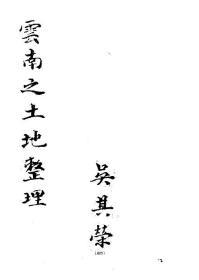 雲南之土地整理
吳其榮